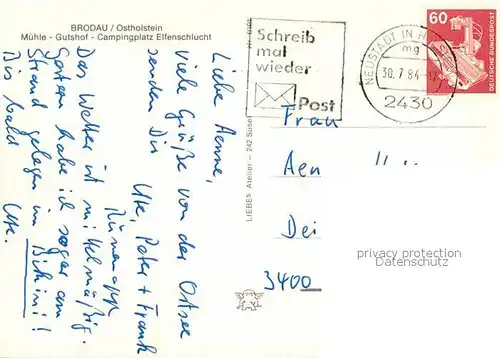 BRODAU / Ostholstein
Mühle - Gutshof - Campingplatz Elfenschlucht
Liebe Aenne,
viele Grüße von der Ostsee
senden Dir Ute, Peter + Frank
Das Wetter ist mittelmäßig.
Gestern habe ich sogar am
Strand gelegen im Bikini!
Bis bald
Ute.
LIEBES Atelier - 242
Schreib
mal
wieder
Post
NEUSTADT IN H
mg
30.7.84
2430
60
DEUTSCHE BUNDESPOST
Frau
Aen
Dei
3400
privacy protection
Datenschutz